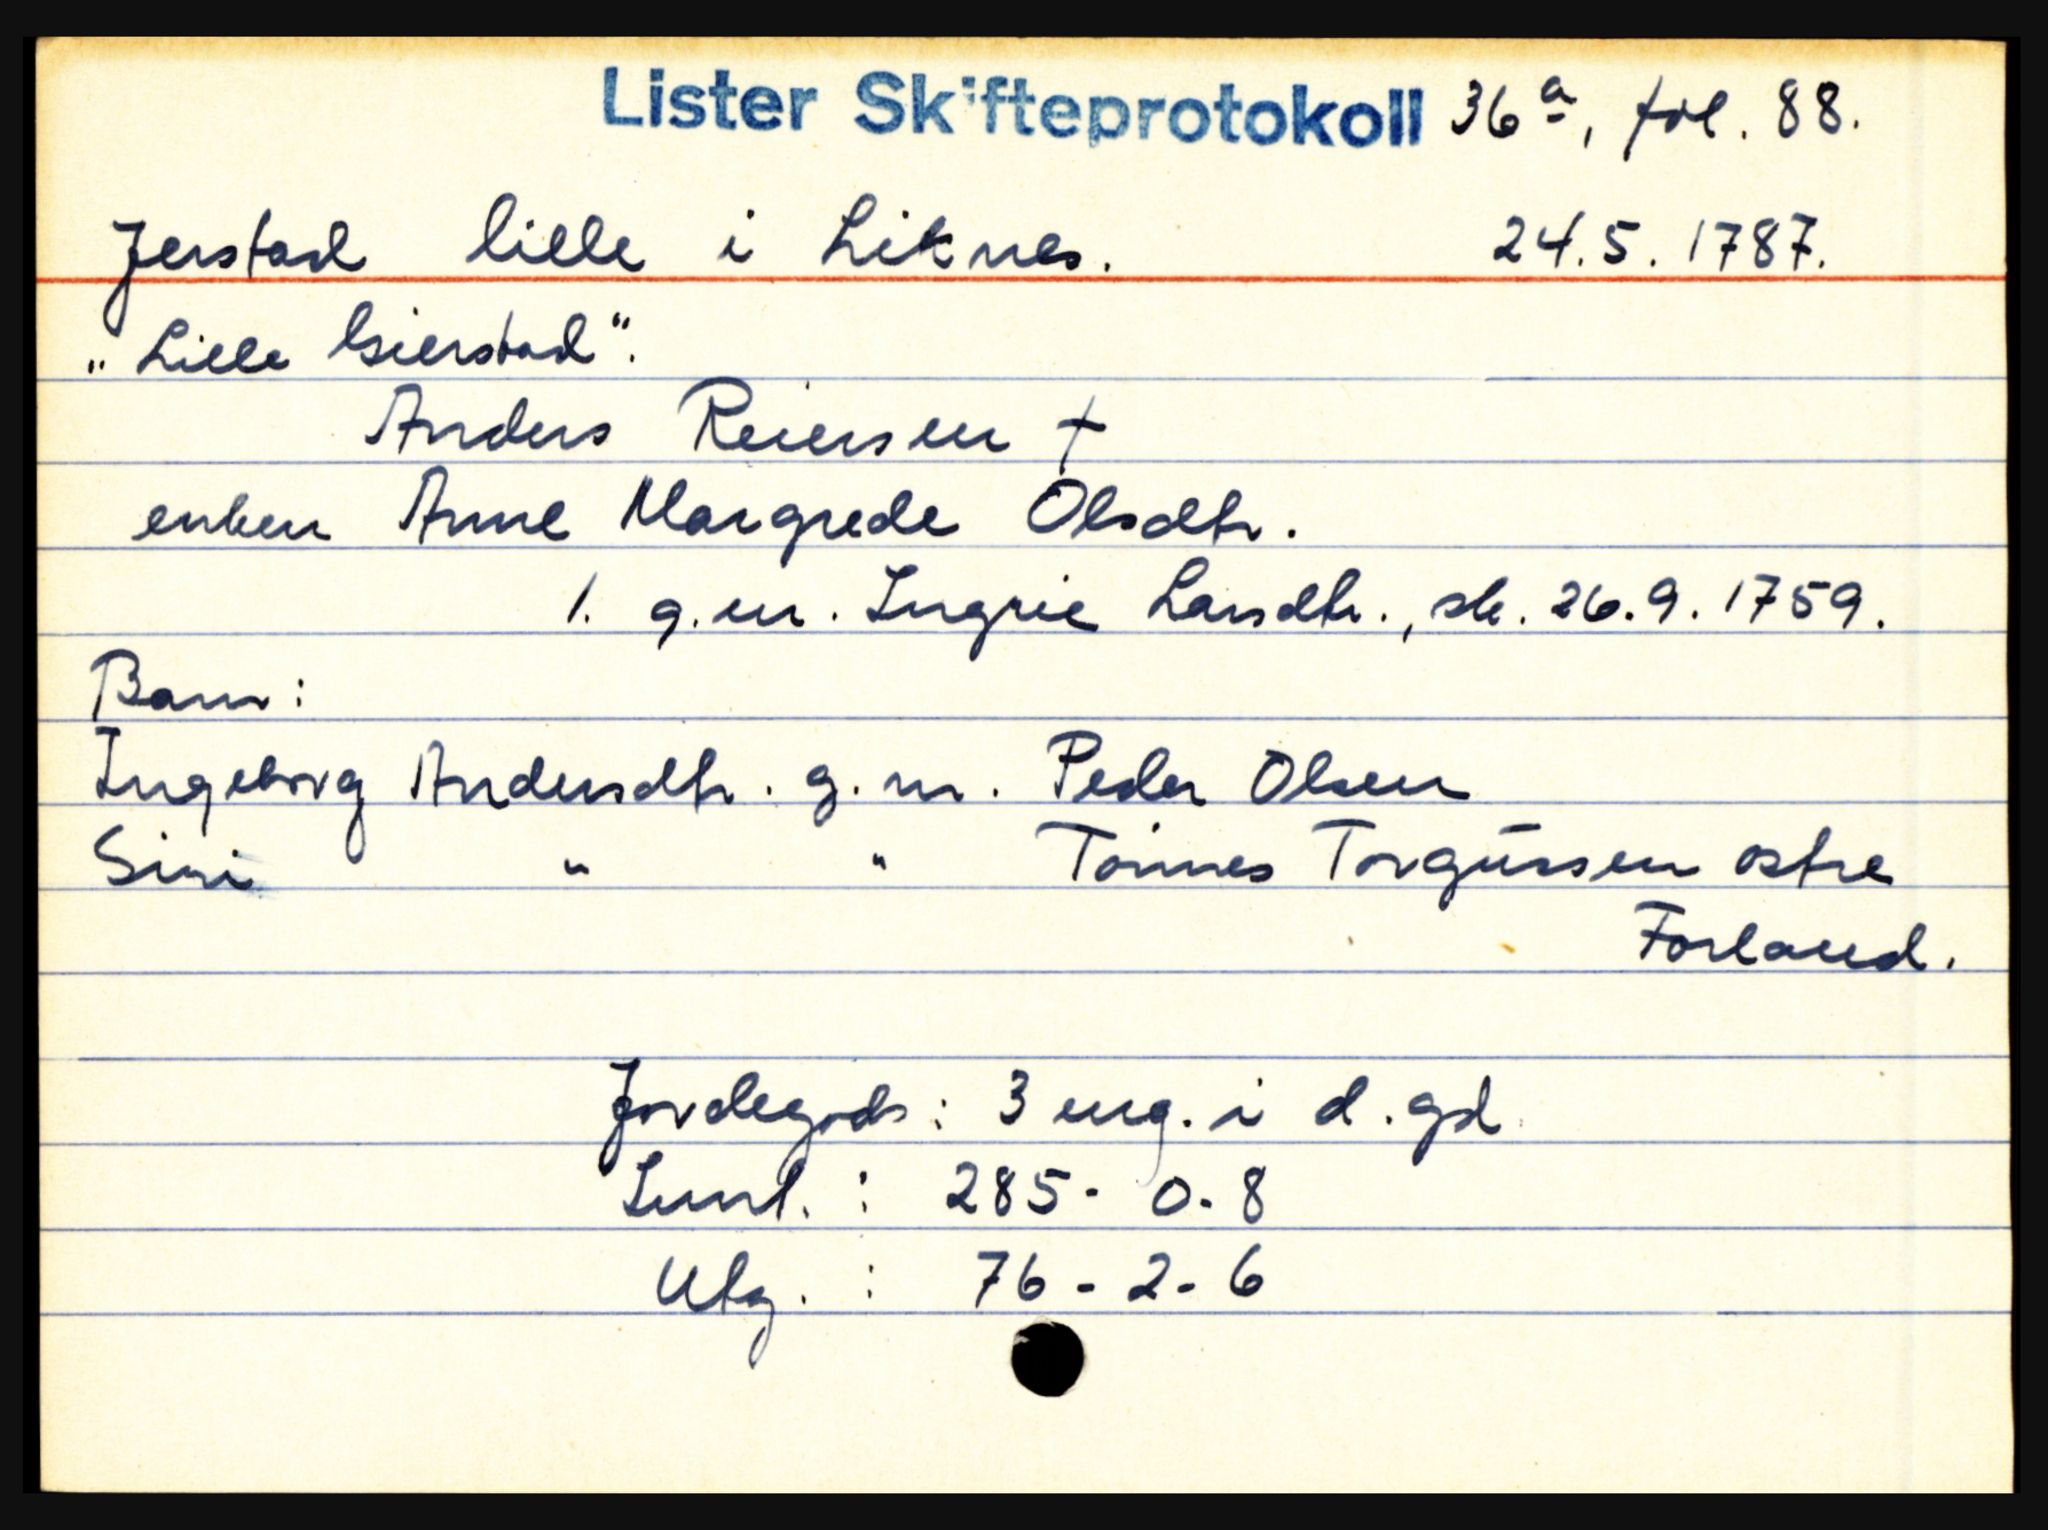 Lister Skifteprotokoll 36a, fol. 88.
Jerstad lille i Liknes. 24.5.1787.
"Lille Gierstad".
Anders Reiersen †
enken Anne Margrede Olsdtr.
1. g.m. Ingrie Larsdtr., sk. 26.9.1759.
Barn:
Ingeborg Andersdtr. g.m. Peder Olsen
Siri " " Tønnes Torgussen østre
Førland.
Jordegods: 3 eng. i d. gd.
Innt. : 285- 0-8
Utg. : 76-2-6